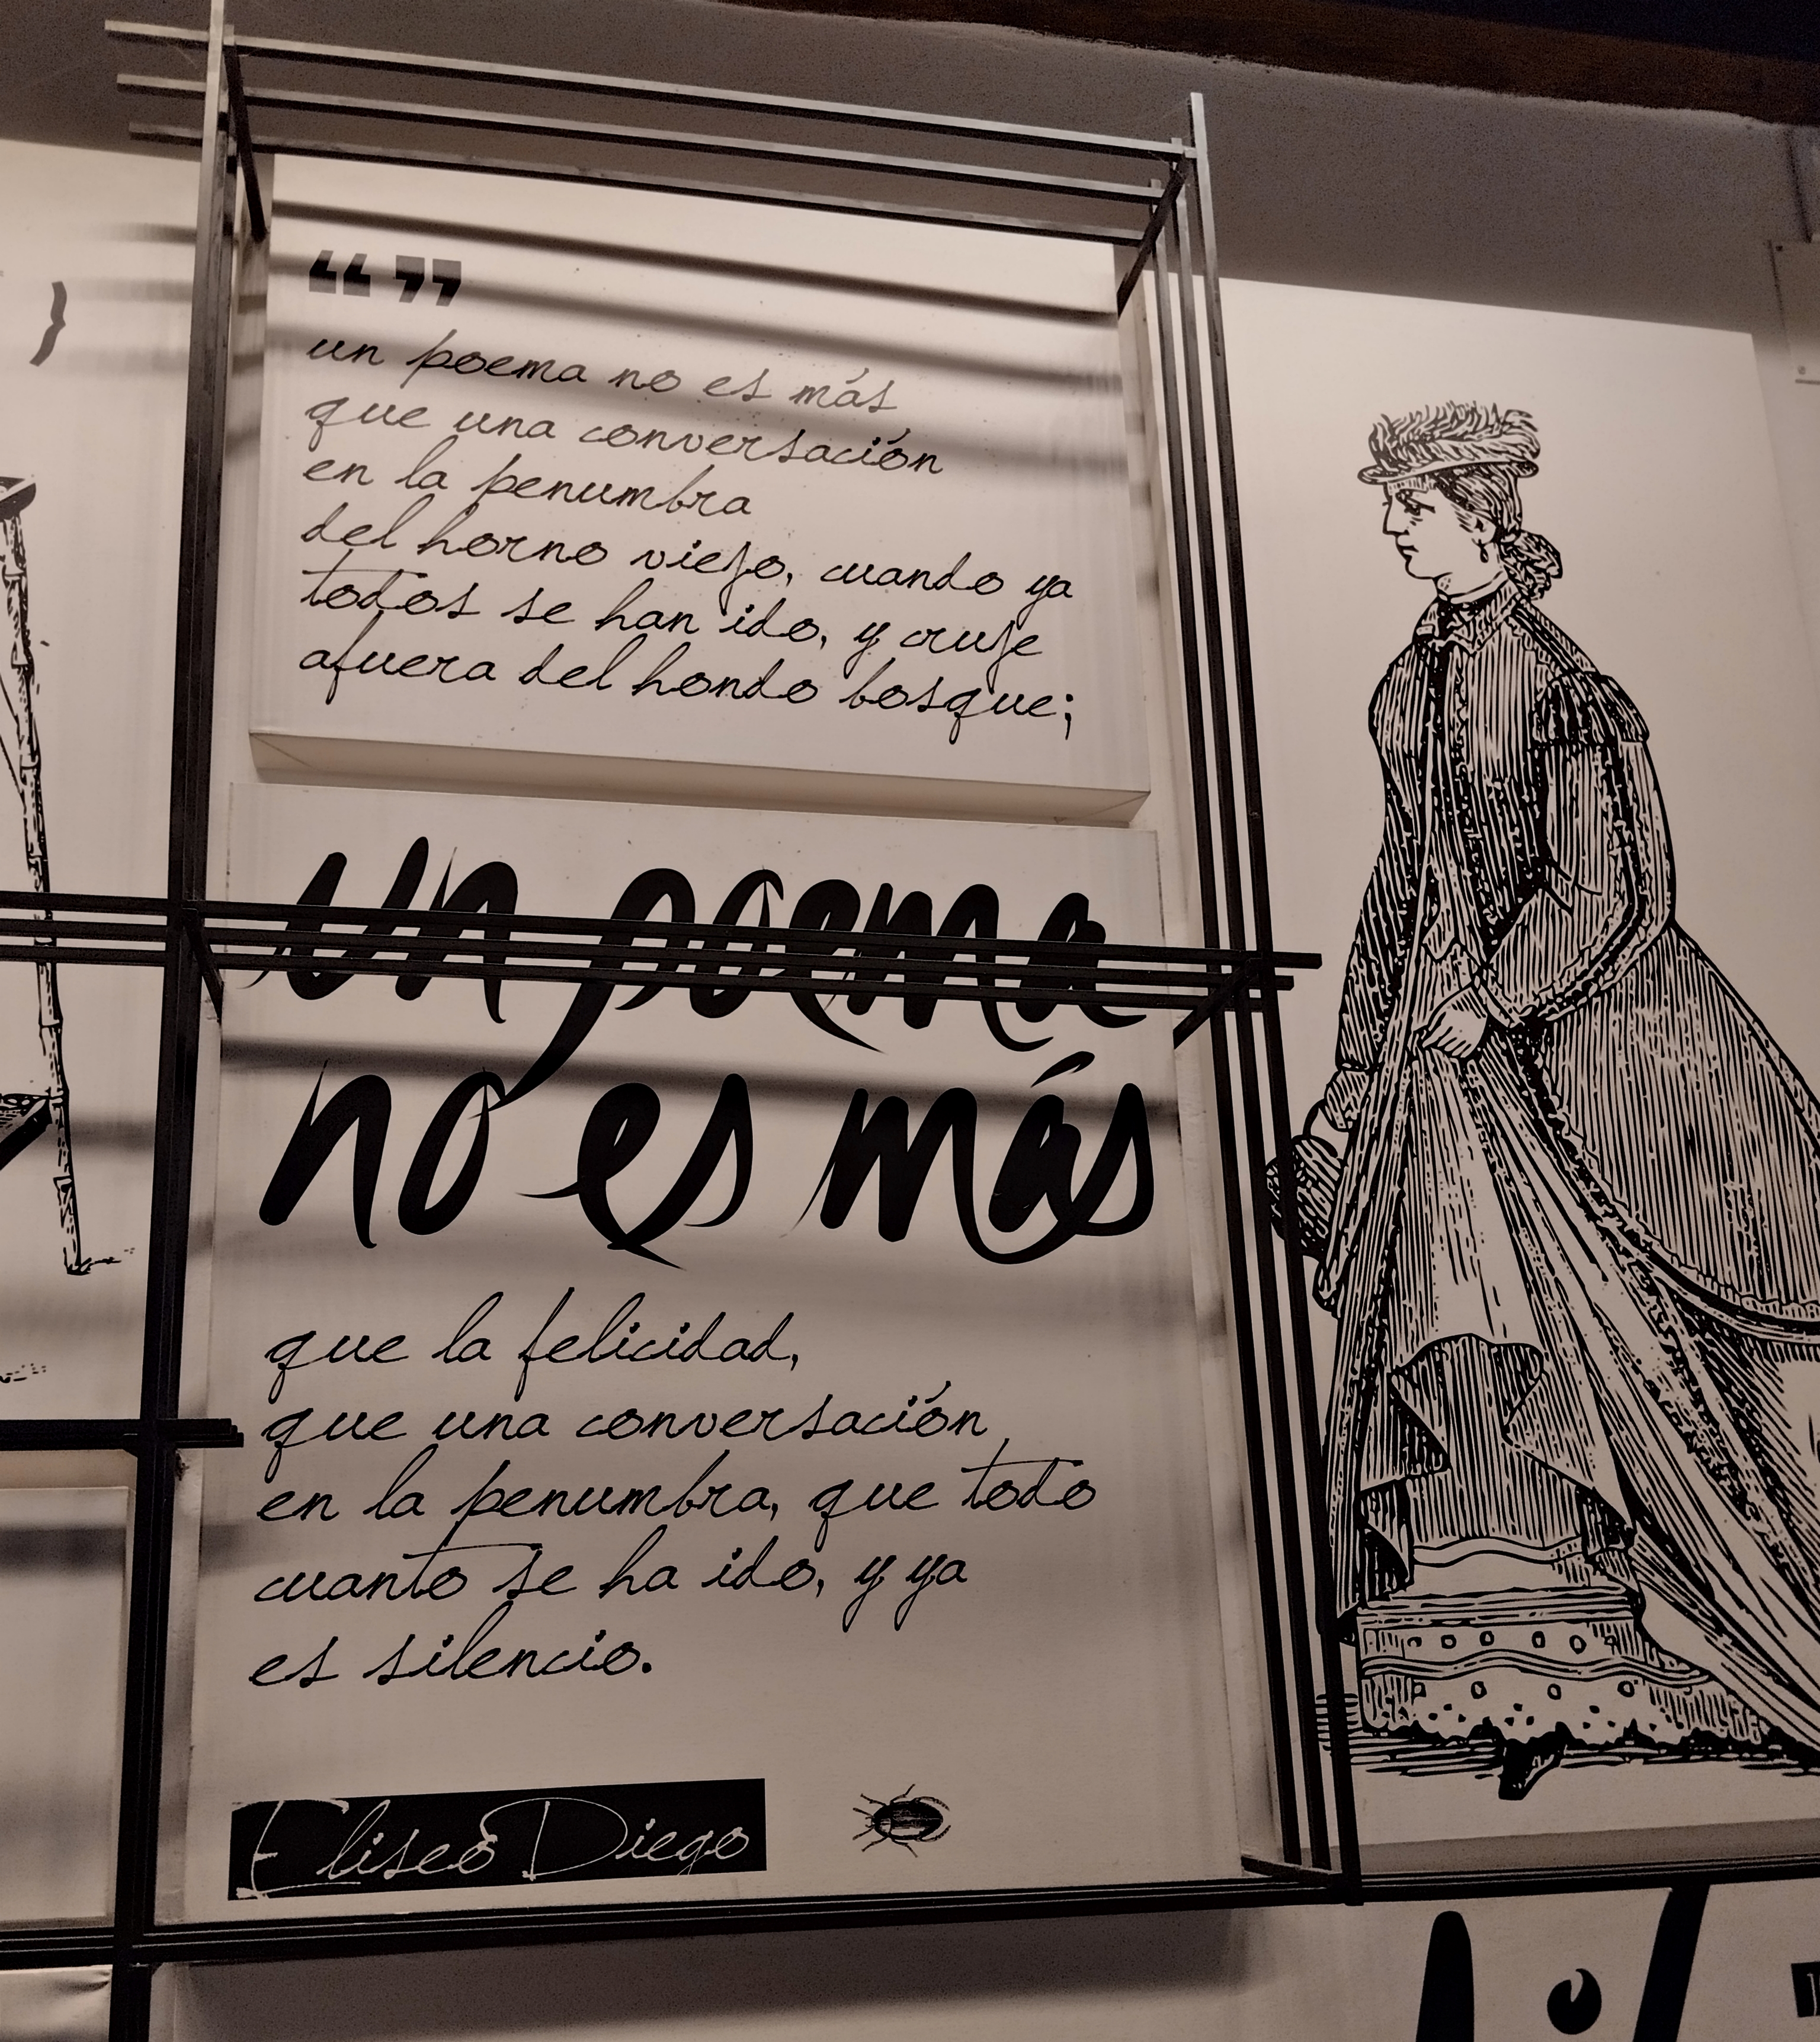 “ ”
un poema no es más
que una conversación
en la penumbra
del horno viejo, cuando ya
todos se han ido, y cruje
afuera del hondo bosque;
un poema
no es más
que la felicidad,
que una conversación
en la penumbra, que todo
cuanto se ha ido, y ya
es silencio.
Eliseo Diego